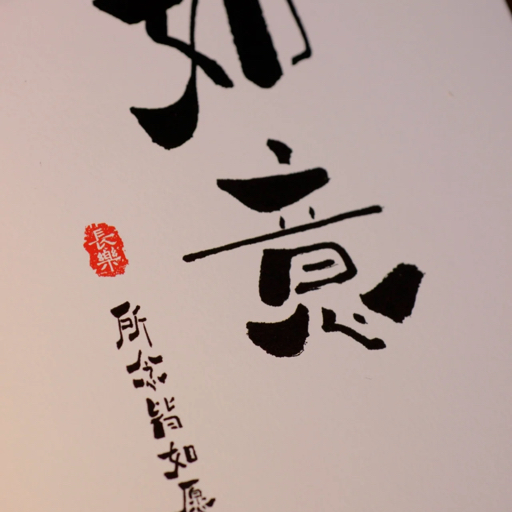 如意
長樂
所念皆如愿